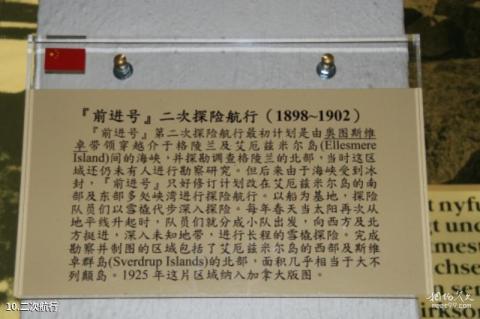 『前进号』二次探险航行（1898~1902）
『前进号』第二次探险航行最初计划是由奥图斯维
卓带领穿越介于格陵兰及艾厄兹米尔岛(Ellesmere
Island)间的海峡，并探勘调查格陵兰的北部，当时这区
域还仍未有人进行勘察研究。但后来由于海峡受到冰
封，『前进号』只好修订计划改在艾厄兹米尔岛的南
部及东部多处峡湾进行探险航行。以船为基地，探险
队员们以雪橇代步深入探险。每年春天当太阳再次从
地平线升起时，队员们就分成小队出发，向西方及北
方挺进，深入未知地带，进行长程的雪橇探险。完成
勘察并制图的区域包括了艾厄兹米尔岛的西部及斯维
卓群岛(Sverdrup Islands)的北部，面积几乎相当于大不
列颠岛。1925 年这片区域纳入加拿大版图。
t nyfu
gt und
mest
chse
n sen
irkson
10.二次航行